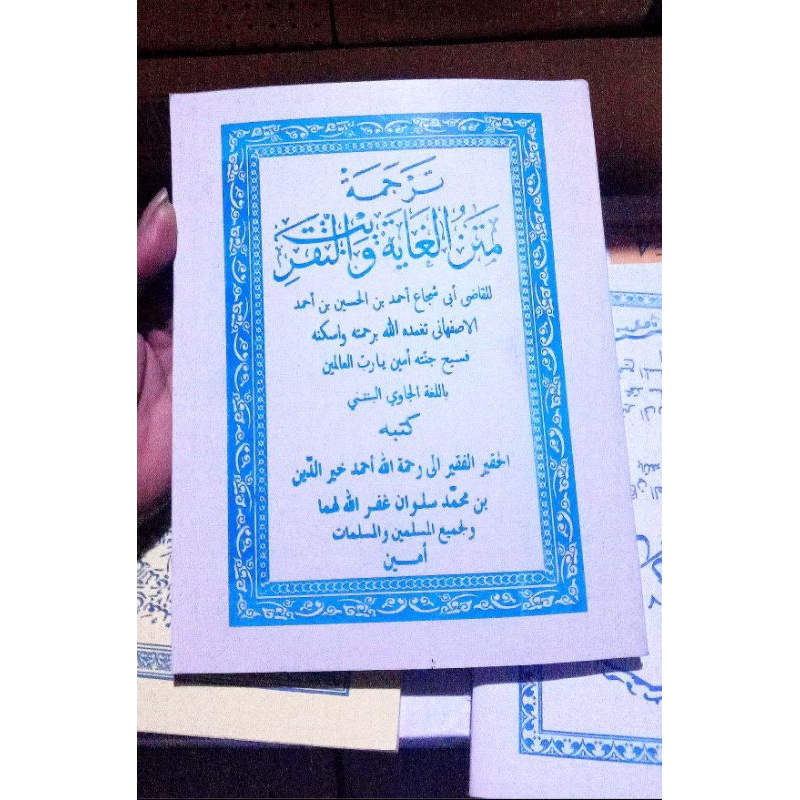 تَرْجَمَةْ
مَتَنُ الْغَايَةِ وَالتَّقْرِيْبْ
للقاضى أبى شجاع أحمد بن الحسين بن أحمد
الاصفهانى تغمده الله برحمته واسكنه
فسيح جنته أمين يارب العالمين
باللغة الجاوي
كتبه
الحقير الفقير الى رحمة الله أحمد خير الدّين
بن محمّد سلوان غفر الله لهما
ولجميع المسلمين والمسلمات
أمين